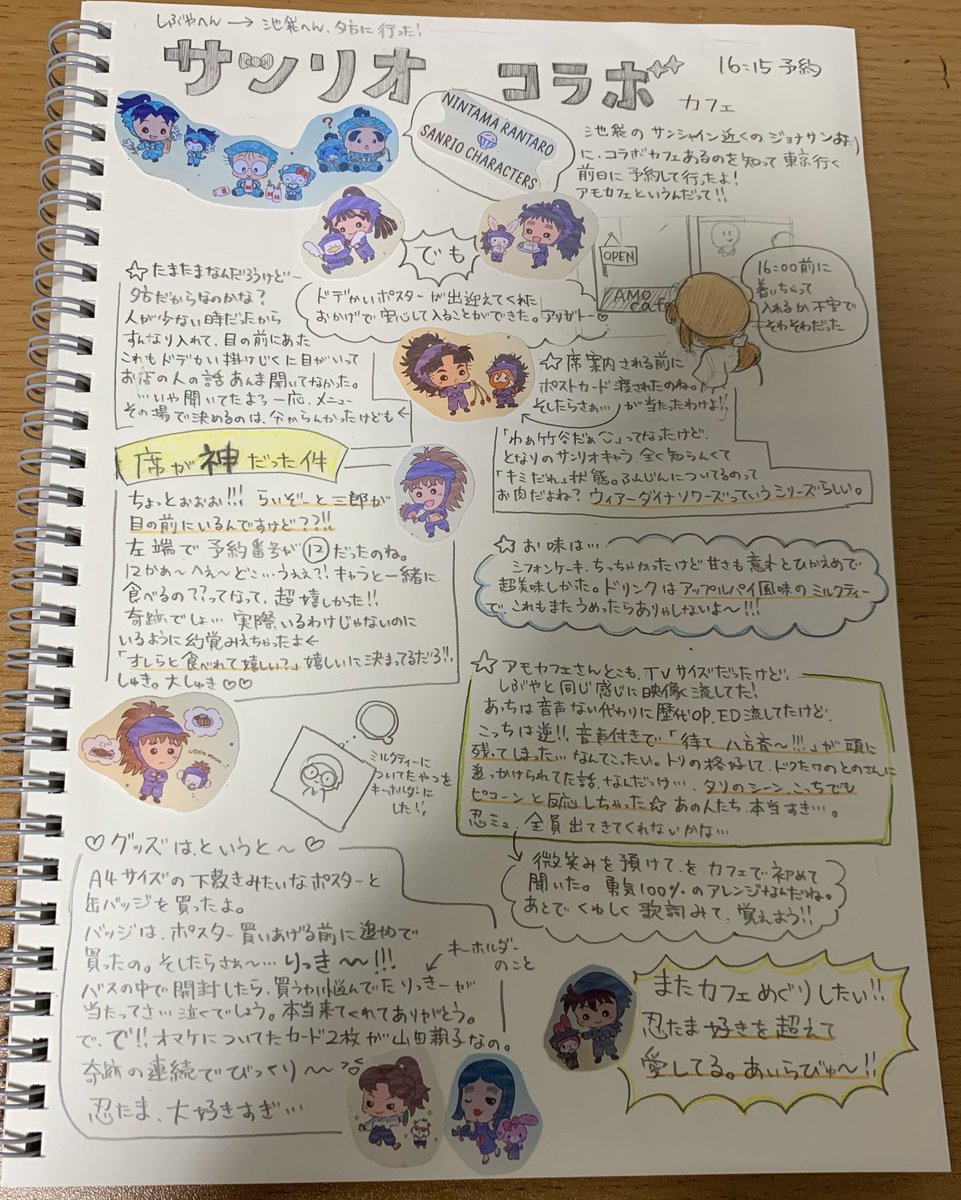 しぶやへん → 池袋へん、夕方に行った!
サンリオ コラボ カフェ
16:15 予約
NINTAMA RANTARO
SANRIO CHARACTERS
池袋の サンシャイン近くの ジョナサンあたり
に、コラボカフェあるのを知って 東京行く
前日に 予約して行ったよ!
アモカフェというんだって!!
でも
ドデかいポスターが出迎えてくれた
おかげで安心して入ることができた。アリガトー♡
OPEN
AMO
cafe
16:00前に
着いちゃって
入れるか不安で
そわそわだった
☆たまたまなんだろうけどー
夕方だからなのかな?
人が少ない時だったから
すんなり入れて、目の前にあった
これもドデかい掛けじくに目がいって
お店の人の話あんま聞いてなかった。
…いや聞いてたよ?一応、メニュー
その場で決めるのは、分からんかったけども←
☆席案内される前に
ポストカード渡されたのね。
そしたらさぁ…ノが当たったわけよ!!
「わぁ竹谷だぁ♡」ってなったけど、
となりのサンリオキャラ 全く知らんくて
「キミだれ」状態。ふんじんについてるのって
お肉だよね? ウィアーダイナソワーズっていうシリーズらしい。
席が神だった件
ちょっとぉぉぉ!!! らいぞーと三郎が
目の前にいるんですけど??!!
左端で予約番号が⑫だったのね。
12かぁ〜へぇ〜どこ…うぇぇ?!キャラと一緒に
食べるの??ってなって、超嬉しかった!!
奇跡でしょ…実際いるわけじゃないのに
いるように幻覚みえちゃったよ←
「オレらと食べれて嬉しい?」嬉しいに決まってるだろ!!
しゅき。大しゅき♡♡
☆お味は…
シフォンケーキ、ちっちゃかったけど甘さも意外とひかえめで
超美味しかった。ドリンクはアップルパイ風味のミルクティー
で、これもまたうめったらありゃしないよ〜!!!
☆アモカフェさんとこも、TVサイズだったけど、
しぶやと同じ感じに映像流してた!
あっちは音声ない代わりに歴代OP、ED流してたけど、
こっちは逆!!音声付きで、「待て八方斎〜!!!」が頭に
残ってしまった…なんてこったい。トリの格好して、ドクたけのとのさんに
追っかけられてた話、なんだっけ…タリのシーン、こっちでも
ピコーンと反応しちゃった☆あの人たち、本当すき…。
忍ミュ、全員出てきてくれないかな…
微笑みを預けて、をカフェで初めて
聞いた。勇気100%のアレンジなんだね。
あとでくわしく歌詞みて、覚えよう!!
UDON
ミルクティーに
ついてたやつを
キーホルダーに
した!!
♡グッズは、というと〜♡
A4サイズの下敷きみたいなポスターと
缶バッジを買ったよ。
バッジは、ポスター買いあげる前に追加で
買ったの。そしたらさぁ〜…りっき〜〜!!!
キーホルダー
のこと
バスの中で開封したら、買うか悩んでたりっきーが
当たってさ…泣くでしょう。本当来てくれてありがとう。
で、で!!オマケについてたカード2枚が山田親子なの。
奇跡の連続でびっくり〜
忍たま、大好きすぎ…
またカフェめぐりしたい!!
忍たま好きを超えて
愛してる。あいらびゅ〜!!